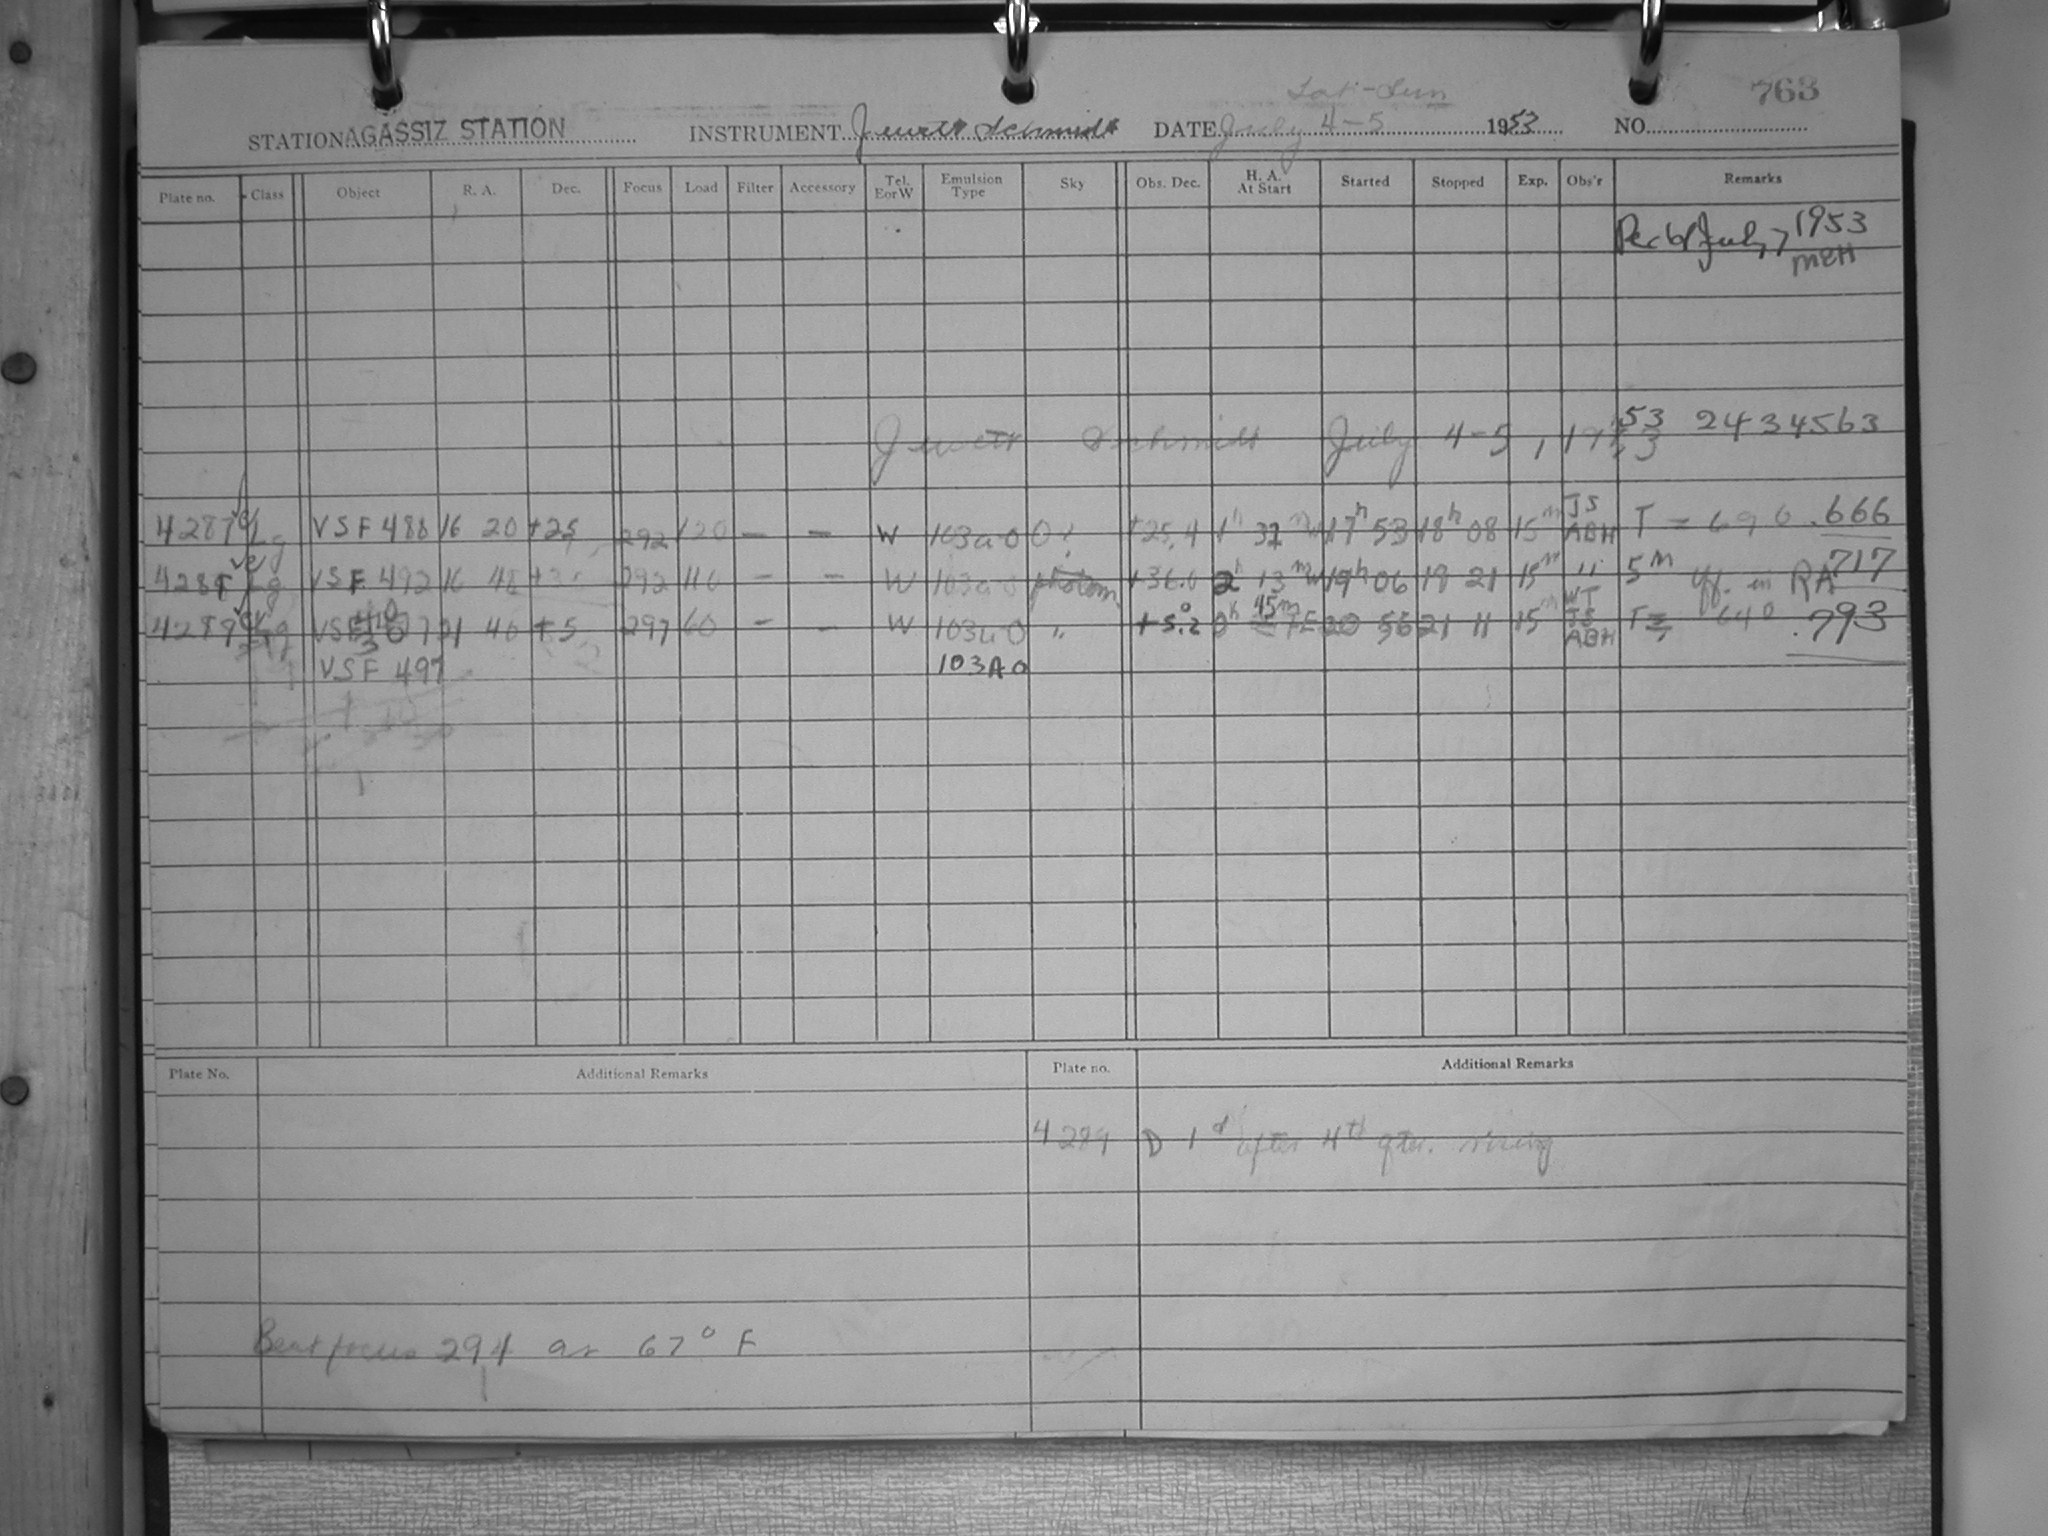 Sat-Sun 763
STATION AGASSIZ STATION INSTRUMENT Jewett Schmidt DATE July 4-5 1953 NO.
Plate no. Class Object R. A. Dec. Focus Load Filter Accessory Tel. E or W Emulsion Type Sky Obs. Dec. H. A. At Start Started Stopped Exp. Obs'r Remarks
Rec'd July 7 1953
MEH
Jewett Schmidt July 4-5, 1953 53 2434563
4287 VSF 488 16 20 +25 292 120 - - W 103a-O +25.4 1h 37m W 17h 53 18h 08 15m JS ABH T = 69° .666
4288 VSF 492 16 48 292 110 - - W 103a-O photom +36.0 2h 13m W 19h 06 19 21 15m " 5m off in RA .717
4289 21 40 +5 297 60 - - W 103a-O " +5.2° 0h 45m E 20 56 21 11 15m WT JS ABH T = 64° .793
VSF 497 103AO
Plate No. Additional Remarks Plate no. Additional Remarks
4289 D 1d after 4th qter. rising
Best focus 294 at 67° F